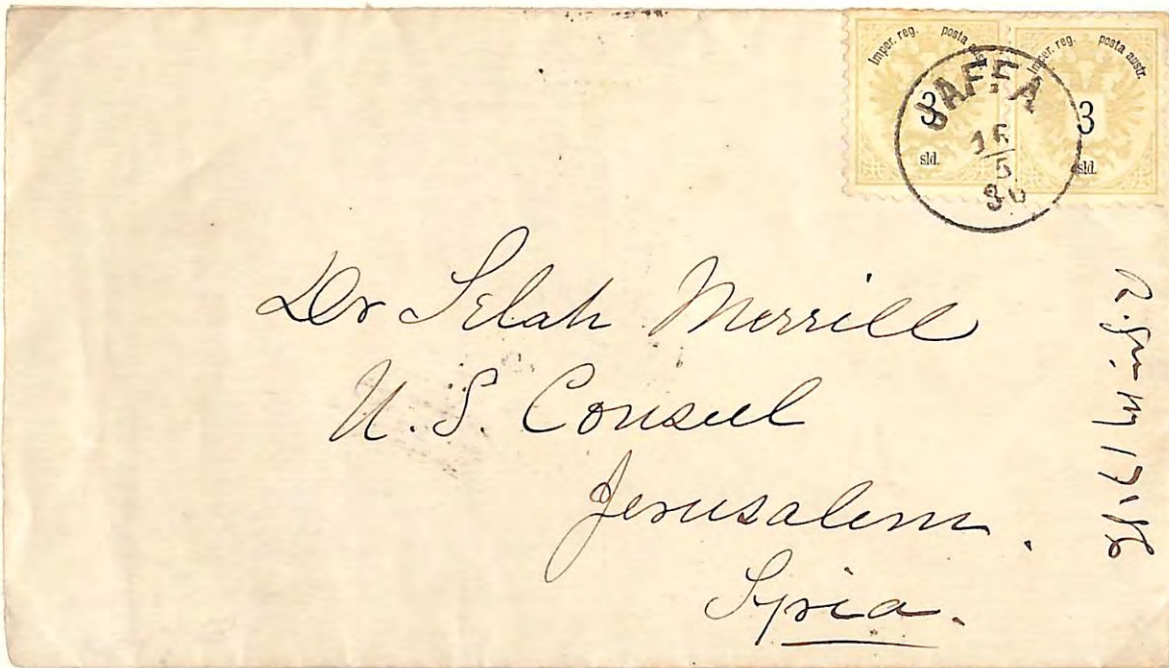 Imper. reg. posta
3
sld.
Imper. reg. posta austr.
3
sld.
JAFFA
16
5
86
Dr Selah Merrill
U.S. Consul
Jerusalem.
Syria.
17.86